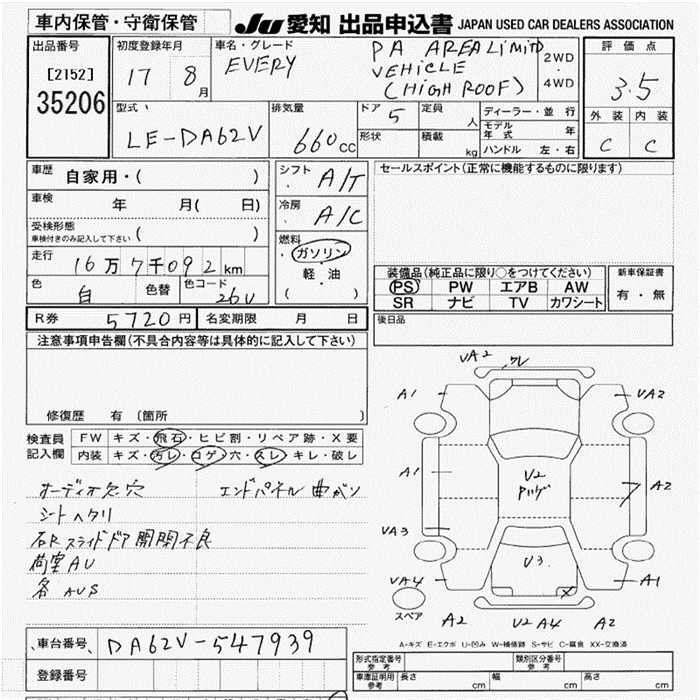 車内保管・守衛保管
JU 愛知 出品申込書 JAPAN USED CAR DEALERS ASSOCIATION
出品番号
[2152]
35206
初度登録年月
17 8月
車名・グレード
EVERY
PA AREA LIMITD
VEHICLE
(HIGH ROOF)
2WD
・
4WD
評価点
3.5
外装 内装
C C
型式
LE-DA62V
排気量
660cc
ドア 5
定員 人
形状
積載 kg
ディーラー・並行
モデル年式 年
ハンドル 左・右
車歴 自家用・( )
車検 年 月( 日)
受検形態
車検付きのみ記入して下さい ( )
走行 16万7千092km
色 白 色替 色コード 26U
シフト A/T
冷房 A/C
燃料
ガソリン
・
軽・油
( )
セールスポイント(正常に機能するものに限ります)
装備品(純正品に限り○をつけてください)
PS PW エアB AW
SR ナビ TV カワシート
新車保証書
有・無
R券 5720円 名変期限 月 日
後日品
注意事項申告欄(不具合内容等は具体的に記入して下さい)
修復歴 有 〔箇所 〕
検査員記入欄
FW キズ・飛石・ヒビ割・リペア跡・X要
内装 キズ・汚レ・コゲ・穴・スレ・キレ・破レ
オーディオ欠.穴 エンドパネル曲がり
シートヘタリ
右Rスライドドア開閉不良
荷室AU
各AUS
VA2 ワレ
A1 VA2
A1 A2
VA3
VA4 A1
A2 V2A4 A2
U2
V3
X
スペア
A-キズ E-エクボ U-凹み W-補修跡 S-サビ C-腐食 XX-交換済
車台番号 DA62V-547939
登録番号
形式指定番号 参考
類別区分番号 参考
車庫証明用 参考 長さ cm 幅 cm 高さ cm